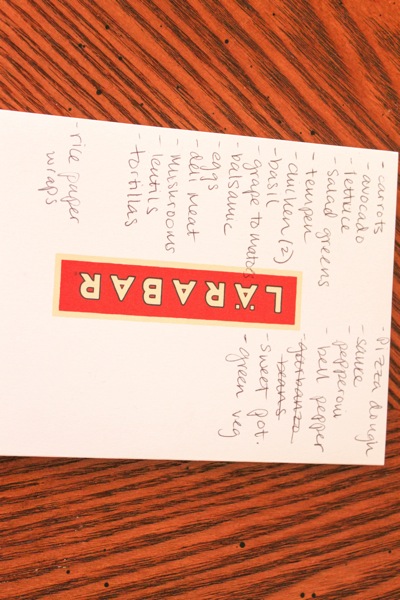 - carrots
- avocado
- lettuce
- salad greens
- tempeh
- chicken (2)
- basil
- grape tomatoes
- balsamic
- eggs
- deli meat
- mushrooms
- lentils
- tortillas
- rice paper
wraps
- pizza dough
- sauce
- pepperoni
- bell pepper
- garbanzo
beans
- sweet pot.
- green veg
LÄRABAR